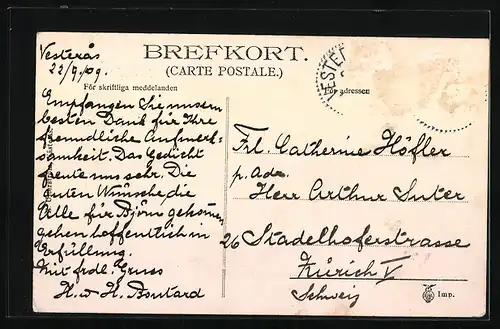 BREFKORT.
(CARTE POSTALE.)
För skriftliga meddelanden
För adressen
VESTER
Vesterås
22/9/09.
Empfangen Sie unsern
besten Dank für Ihre
freundliche Aufmerk-
samkeit. Das Gedicht
freute uns sehr. Die
guten Wünsche, die
Alle für Björn gekommen,
gehen hoffentlich in
Erfüllung.
Mit frdl. Gruss
H. u H. Boutard
Frl. Catherine Höfler
p. adr.
Herr Arthur Suter
26 Stadelhoferstrasse
Zürich V
Schweiz
Imp.